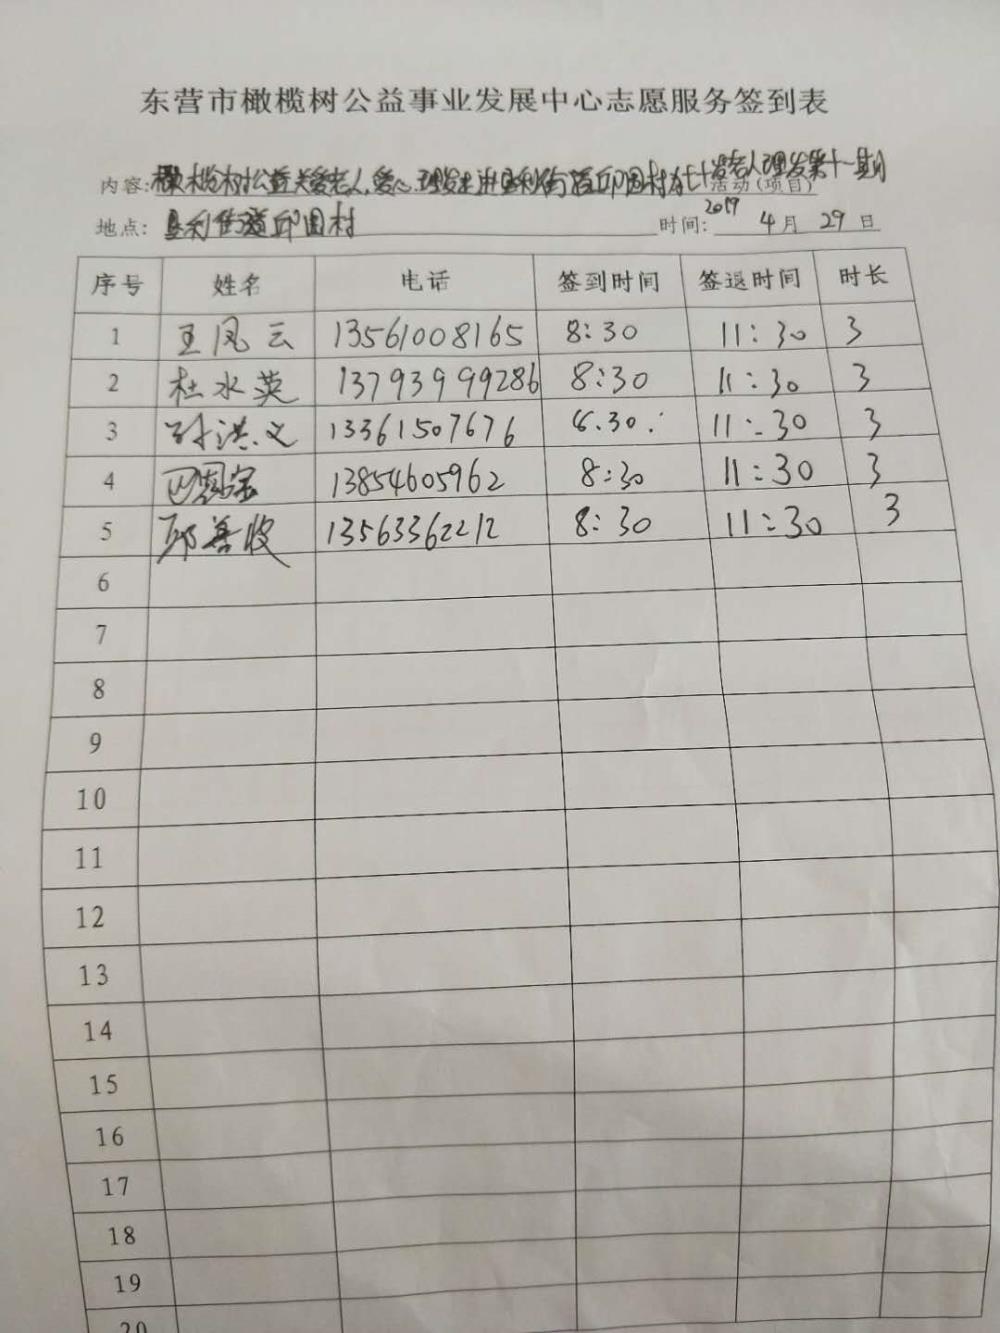 东营市橄榄树公益事业发展中心志愿服务签到表
内容:橄榄树公益关爱老人,爱心理发走进垦利街道邱围村为七十岁老人理发第十一期活动(项目)
地点:垦利街道邱围村 时间:2019 4月29日
序号 姓名 电话 签到时间 签退时间 时长
1 王凤云 13561008165 8:30 11:30 3
2 杜水英 13793999286 8:30 11:30 3
3 孙洪义 13361507676 8.30. 11:30 3
4 13854605962 8:30 11:30 3
5 邱善收 13563362212 8:30 11:30 3
6
7
8
9
10
11
12
13
14
15
16
17
18
19
20